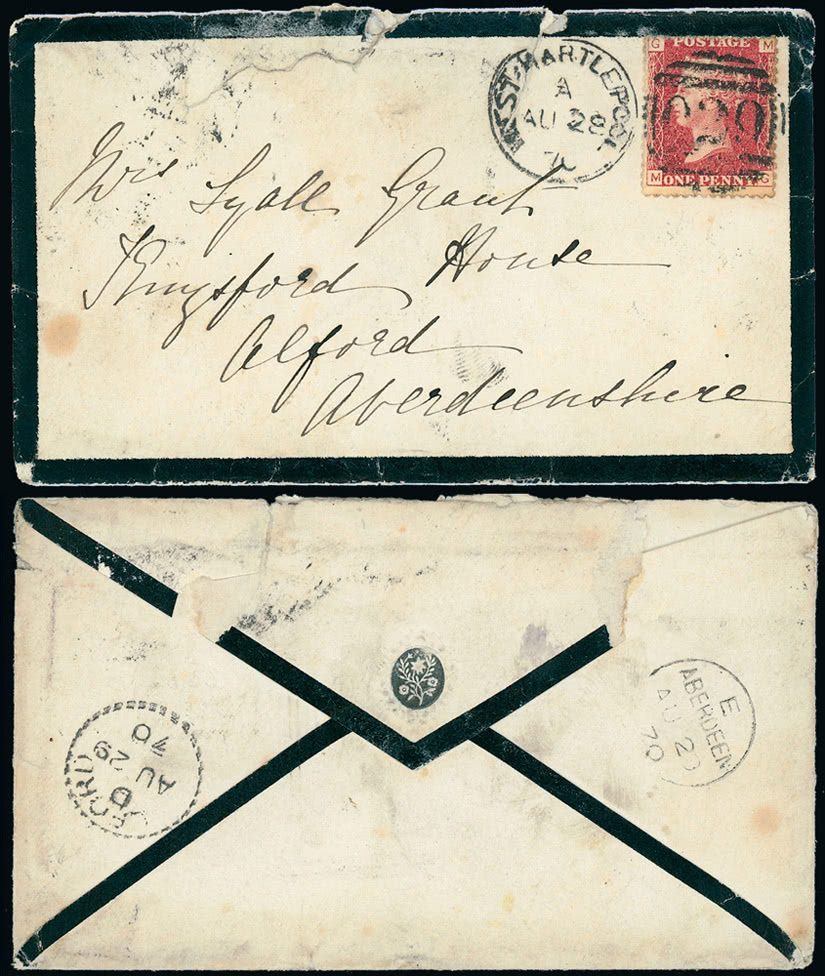 WEST-HARTLEPOOL
A
AU 28
70
G M
POSTAGE
029
M G
ONE PENNY
Mrs Lyall Grant
Kingsford House
Alford
Aberdeenshire
FORD
D
AU 29
70
E
ABERDEEN
AU 29
70